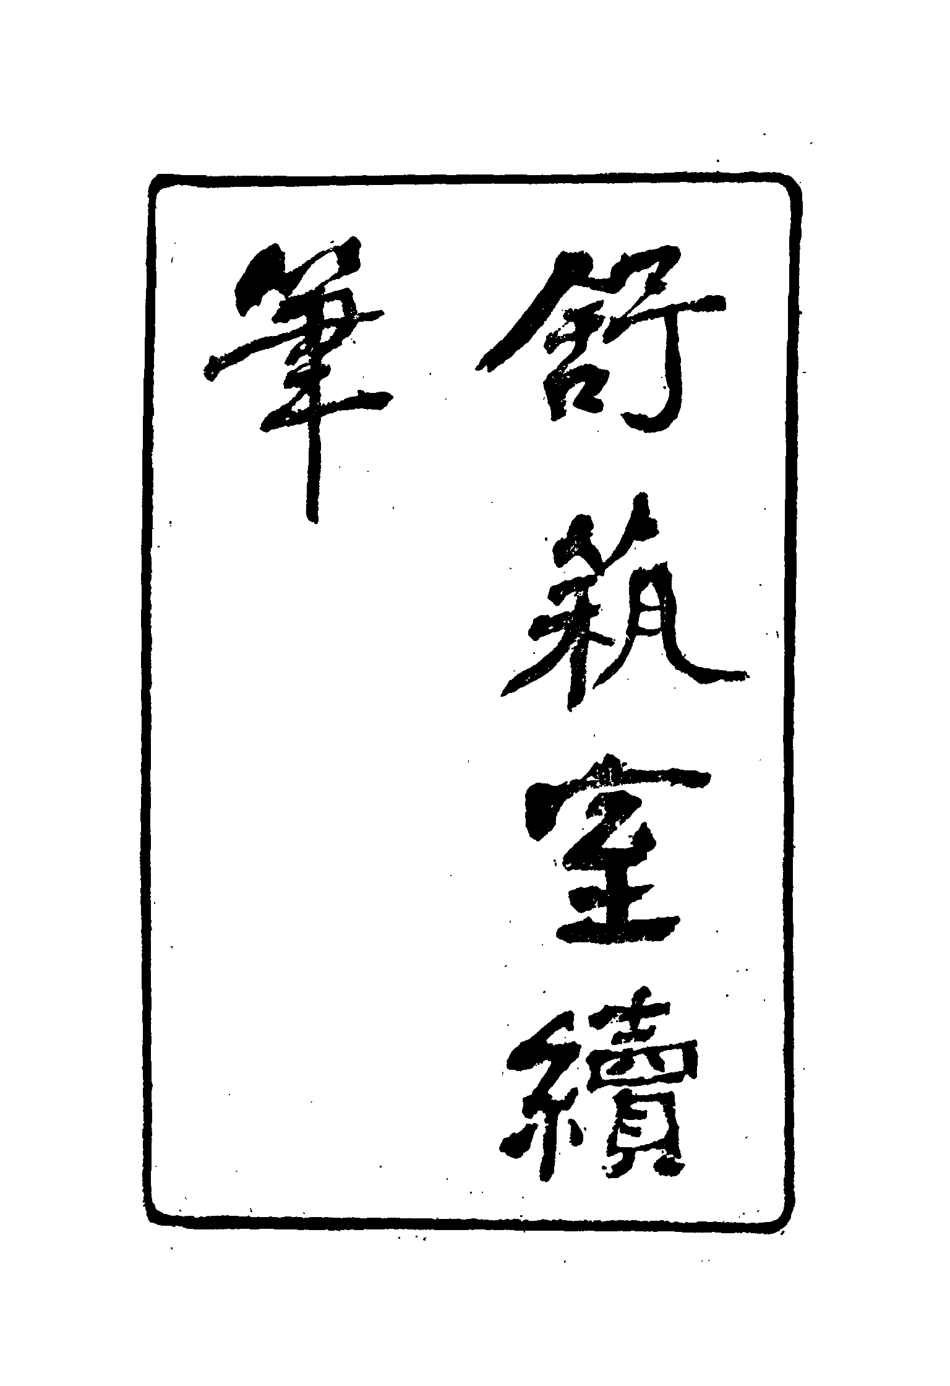 舒蓺室續
筆